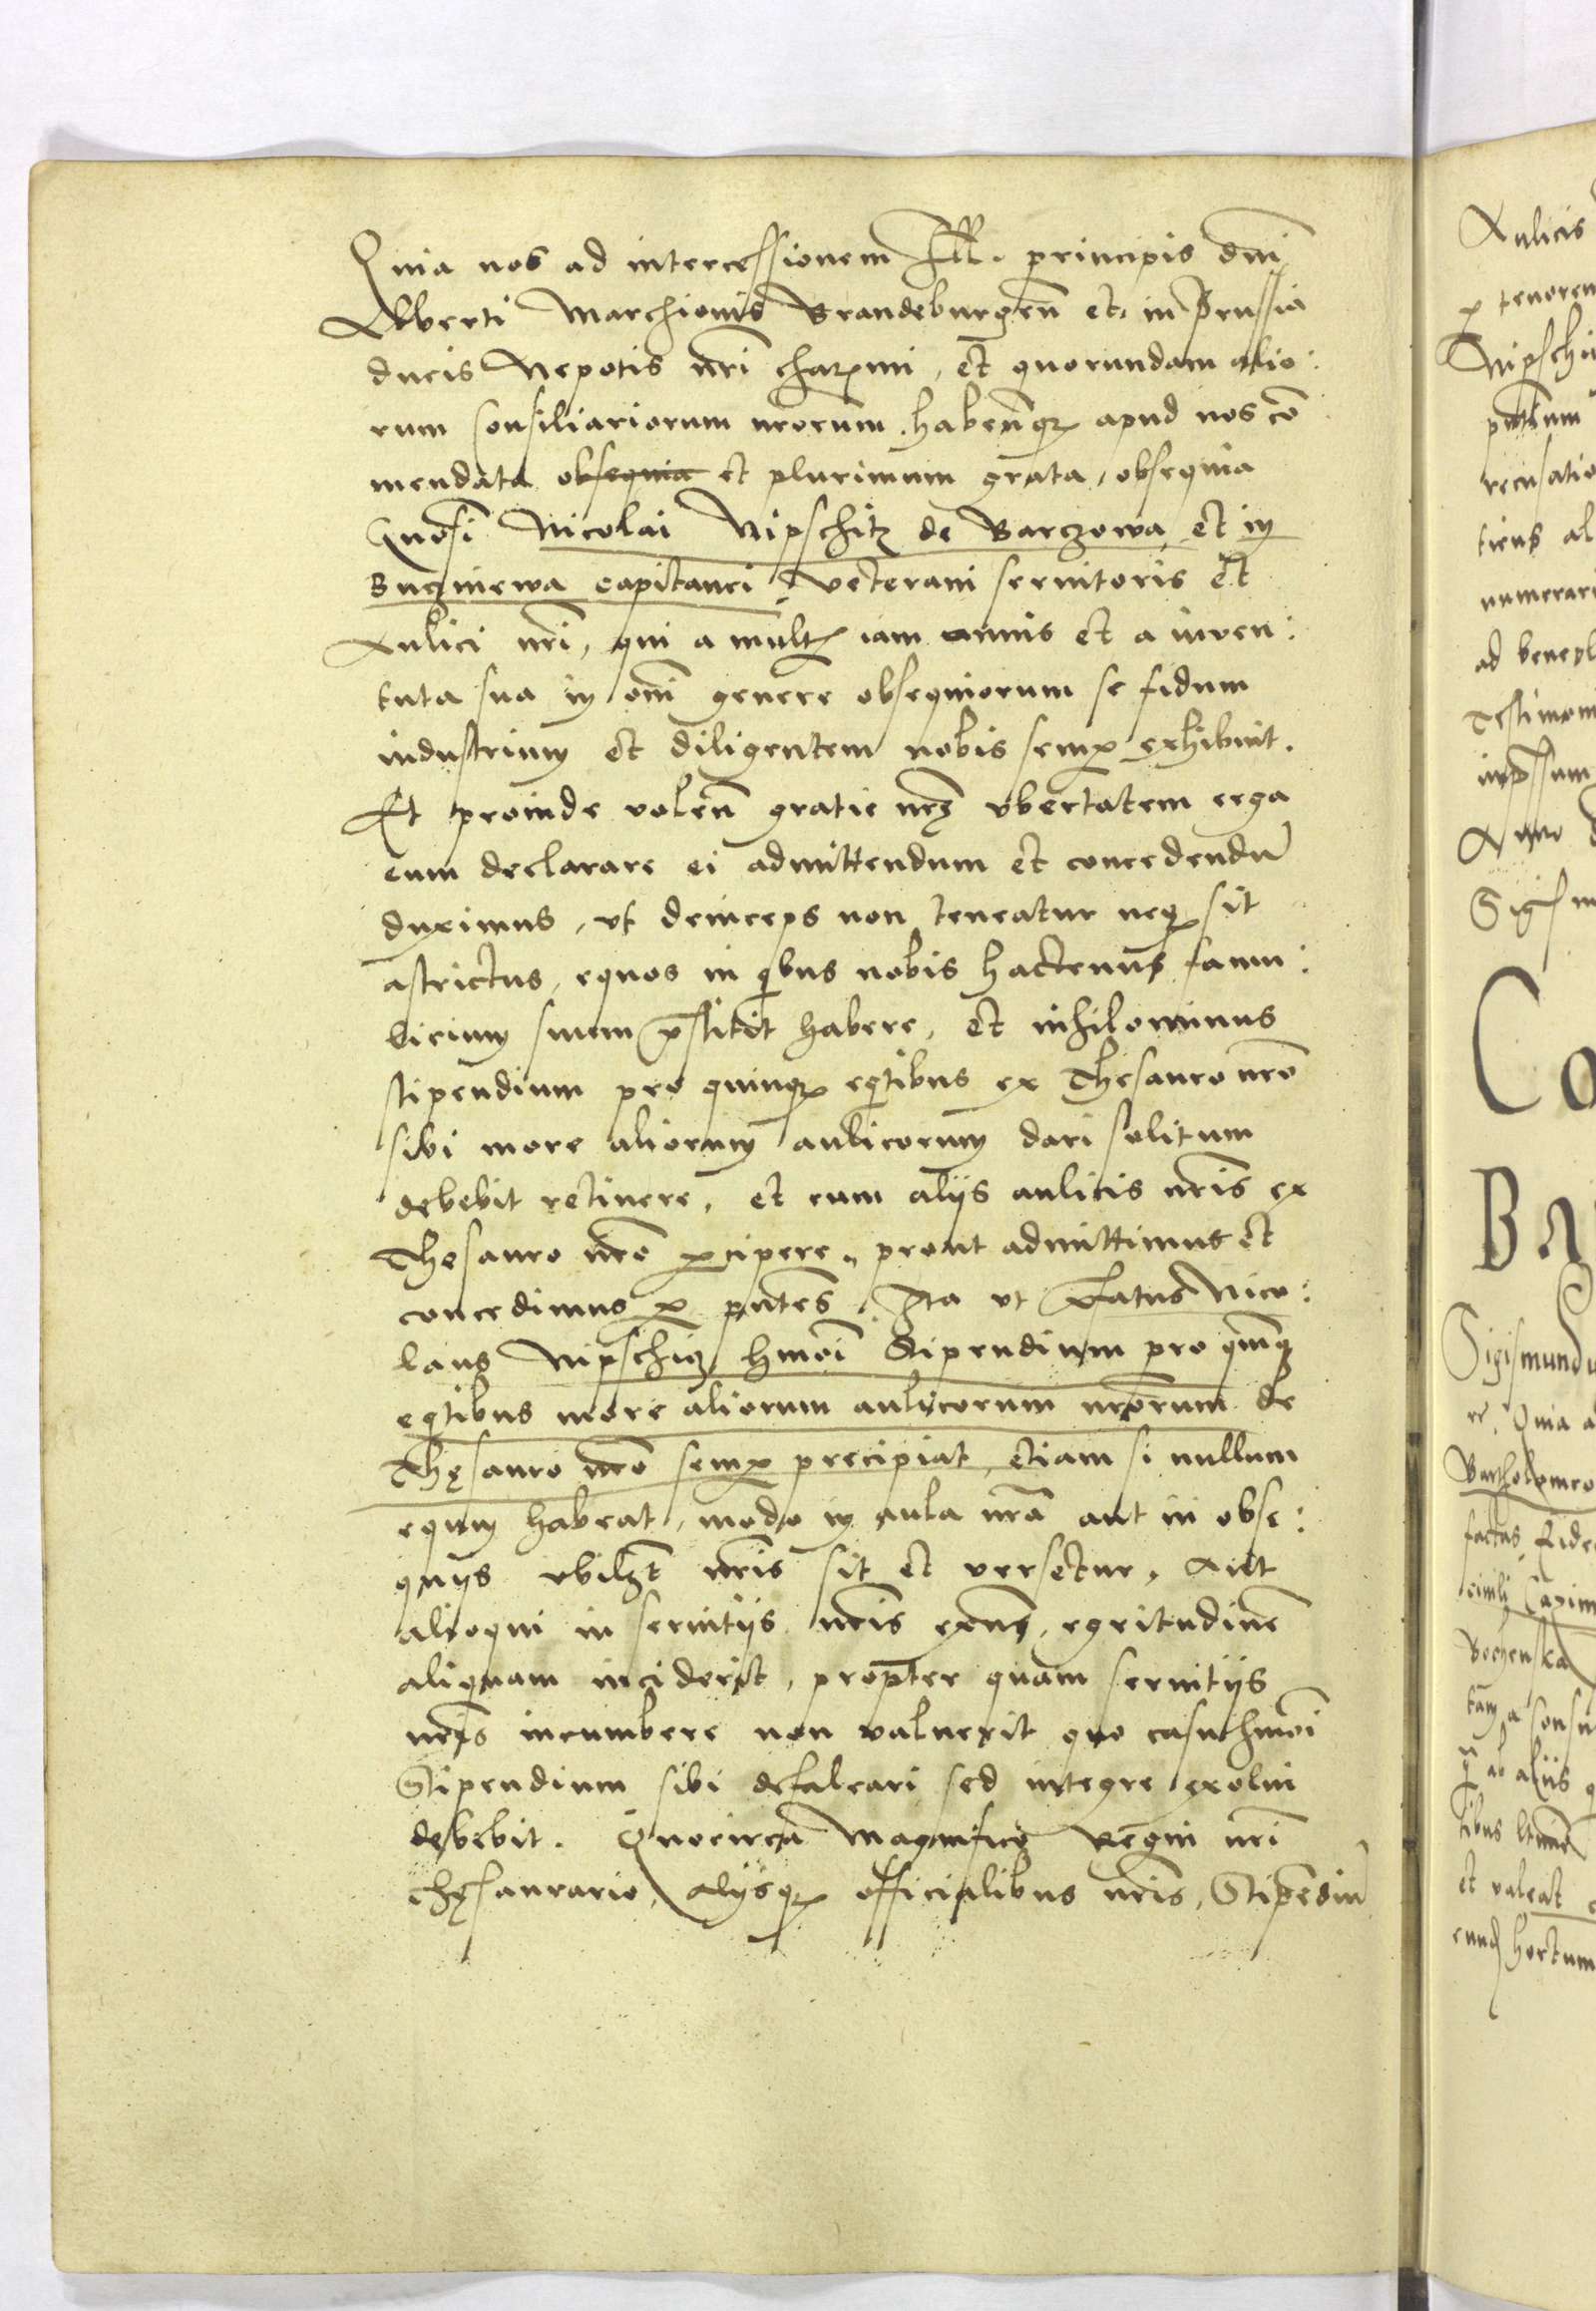 Quia nos ad intercessionem Ill. principis dni
Alberti Marchionis Brandeburgen̄ etc. in Prussia
ducis Nepotis nri charimi, et quorundam alio:
rum consiliariorum nrorum. habenq̄ apud nos co
mendata obsequia et plurimum grata, obsequia
Gnosi Nicolai Nipschitz de Barczowa et in
capitanei, veterani seruitoris et
Aulici nri, qui a mult iam annis et a iuuen:
tuta sua in omi genere obsequiorum se fidum
industrium et diligentem nobis semp exhibuit.
Et proinde volen̄ gratie nrę vbertatem erga
eum declarare ei admittendum et concedendū
duximus, vt deinceps non teneatur neq sit
astrictus, equos in qbus nobis hactenus famu:
licium suum pstitit habere, et nihilominus
stipendium pro quinq eqtibus ex Thesauro nro
sibi more aliorum aulicorum dari solitum
debebit retinere, et cum alijs aulicis nris ex
Thesauro nro pcipere, prout admittimus et
concedimus p pntes. Ita vt pfatus Nico:
laus Nipschicz hmoi Stipendium pro qnq
eqtibus more aliorum aulicorum nrorum de
Thęsauro nro semp precipiat, etiam si nullum
equm habeat, modo in aula nra aut in obse:
quijs vbilzt nris sit et versetur, Aut
alioqui in seruitijs nris exns, egritudine
aliquam inciderit, propter quam seruitijs
nris incumbere non valuerit quo casu hmoi
Stipendium sibi defalcari sed integre exolui
debebit. Quocirca Magnifico Regni nri
thęsaurario, Alijsq officialibus nris, Stipendiū
Aulicis
p tenorem
Nipschi
recusatio
tiens al
numerari
ad benepl
Testimoni
impssum
Anno
Sigism
Co
Ba
Sigismundu
Quia a
Bartholomeo